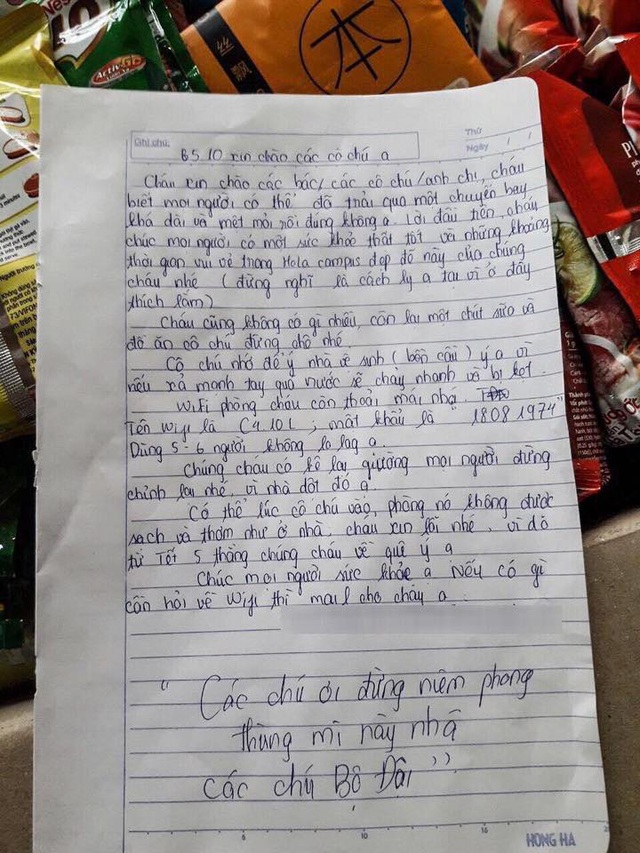 Ghi chú:
B5.10 xin chào các cô chú ạ
Thứ
Ngày / /
Cháu xin chào các bác/các cô chú/anh chị, cháu
biết mọi người có thể đã trải qua một chuyến bay
khá dài và mệt mỏi rồi đúng không ạ. Lời đầu tiên, cháu
chúc mọi người có một sức khỏe thật tốt với những khoảng
thời gian vui vẻ trong Hola campus đẹp đẽ này của chúng
cháu nhé (đừng nghĩ là cách ly ạ tại vì ở đây
thích lắm)
Cháu cũng không có gì nhiều, còn lại một chút sữa và
đồ ăn cô chú đừng chê nhé.
Cô chú nhớ để ý nhà vệ sinh (bồn cầu) ý ạ vì
nếu xả mạnh tay quá nước sẽ chảy nhanh và bị kẹt.
Wifi phòng cháu còn thoải mái nhá.
Tên wifi là C410L; mật khẩu là "18081974"
Dùng 5-6 người không lo lag ạ.
Chúng cháu có kê lại giường mọi người đừng
chỉnh lại nhé, vì nhà dột đó ạ.
Có thể lúc cô chú vào, phòng nó không được
sạch và thơm như ở nhà, cháu xin lỗi nhé, vì đó
từ Tết 5 tháng chúng cháu về quê ý ạ
Chúc mọi người sức khỏe ạ Nếu có gì
cần hỏi về wifi thì mail cho cháu ạ
"Các chú ơi đừng niêm phong
thùng mì này nhá
các chú Bộ Đội"
5 10 15
HONG HA